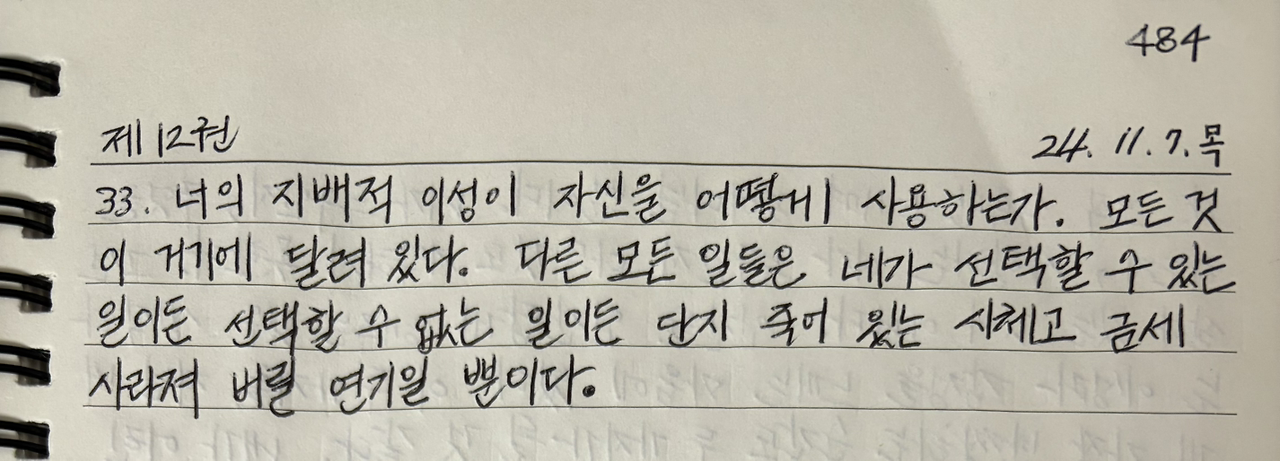 484
제12권 24. 11. 7. 목
33. 너의 지배적 이성이 자신을 어떻게 사용하는가. 모든 것
이 거기에 달려 있다. 다른 모든 일들은 네가 선택할 수 있는
일이든 선택할 수 없는 일이든 단지 죽어 있는 시체고 금세
사라져 버릴 연기일 뿐이다.